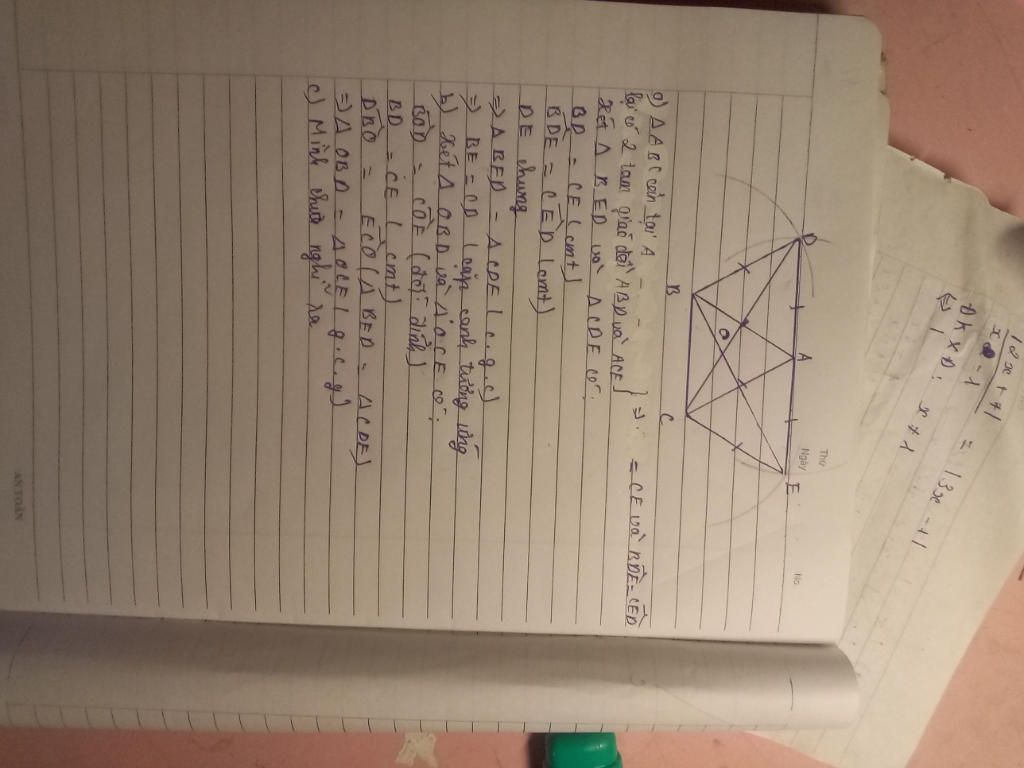 Thứ
Ngày
No.
D
A
E
B
O
C
a) Δ ABC cân tại A
lại có 2 tam giác đều ABD và ACE } => = CE và BDE = CED
Xét Δ BED và Δ CDE có:
BD = CE (cmt)
BDE = CED (cmt)
DE chung
=> Δ BED = Δ CDE (c.g.c)
=> BE = CD (cặp cạnh tương ứng
b) Xét Δ OBD và Δ OCE có:
BOD = COE (đối đỉnh)
BD = CE (cmt)
DBO = ECO (Δ BED = Δ CDE)
=> Δ OBD = Δ OCE (g.c.g)
c) Mình chưa nghĩ ra
AN TOÀN
= 13x - 11
ĐKXĐ: x ≠ 1